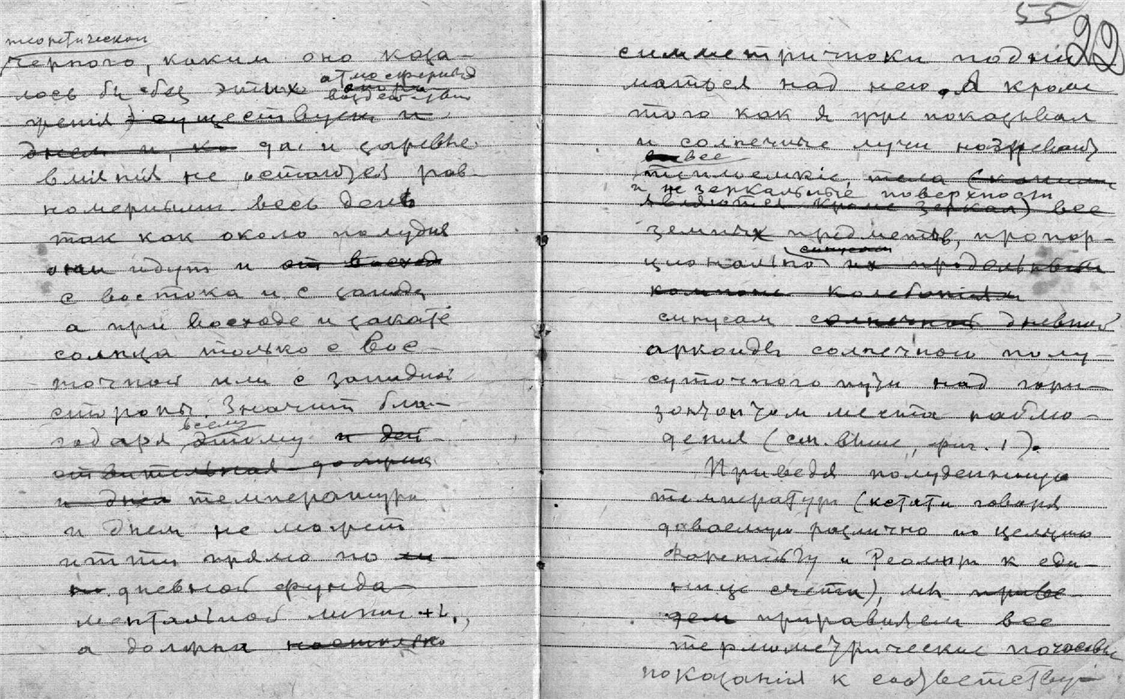 теоретической
черного, каким оно каза-
лось бы без этих атмосферных
воздействий
да и
влiянiя не остаются рав-
номерными весь день
так как около полудня
они идут и от восход
с востока и с запада
а при восходе и закате
солнца только с вос-
точной или с западной
стороны. Значит бла-
годаря всему этому и дей-
ствительная
и днем температура
и днем не может
итти прямо по
дневной фунда-
ментальной линии +L,
а должна настолько
55
22
симметрически подни-
маться над нею. А кроме
того как я уже показывал
и солнечные лучи нагревают
все
теплоемкiе тела
и незеркальные поверхности
являются кроме зеркал) все
земных предметов, пропор-
цiонально синусам их
колебанiям
синусам солнечной дневной
аркоиды солнечного полу-
суточного пути над гори-
зонтом места наблю-
дения (см. выше, фиг. 1).
Приведя полуденную
температуру (кстати говоря
даваемую различно по Цельзiю
Фаренгейту и Реомюру к еди-
нице счета), мы приве-
дем приравняем все
термометрические почасовые
показанiя к соответствую-